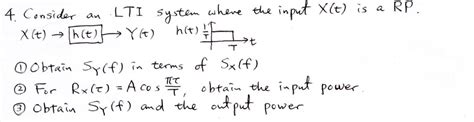 4. Consider an LTI system where the input X(t) is a RP.
X(t) → h(t) → Y(t) h(t) 1/T T →t
① Obtain Sy(f) in terms of Sx(f)
② For Rx(τ) = A cos πτ/T, obtain the input power.
③ Obtain Sy(f) and the output power